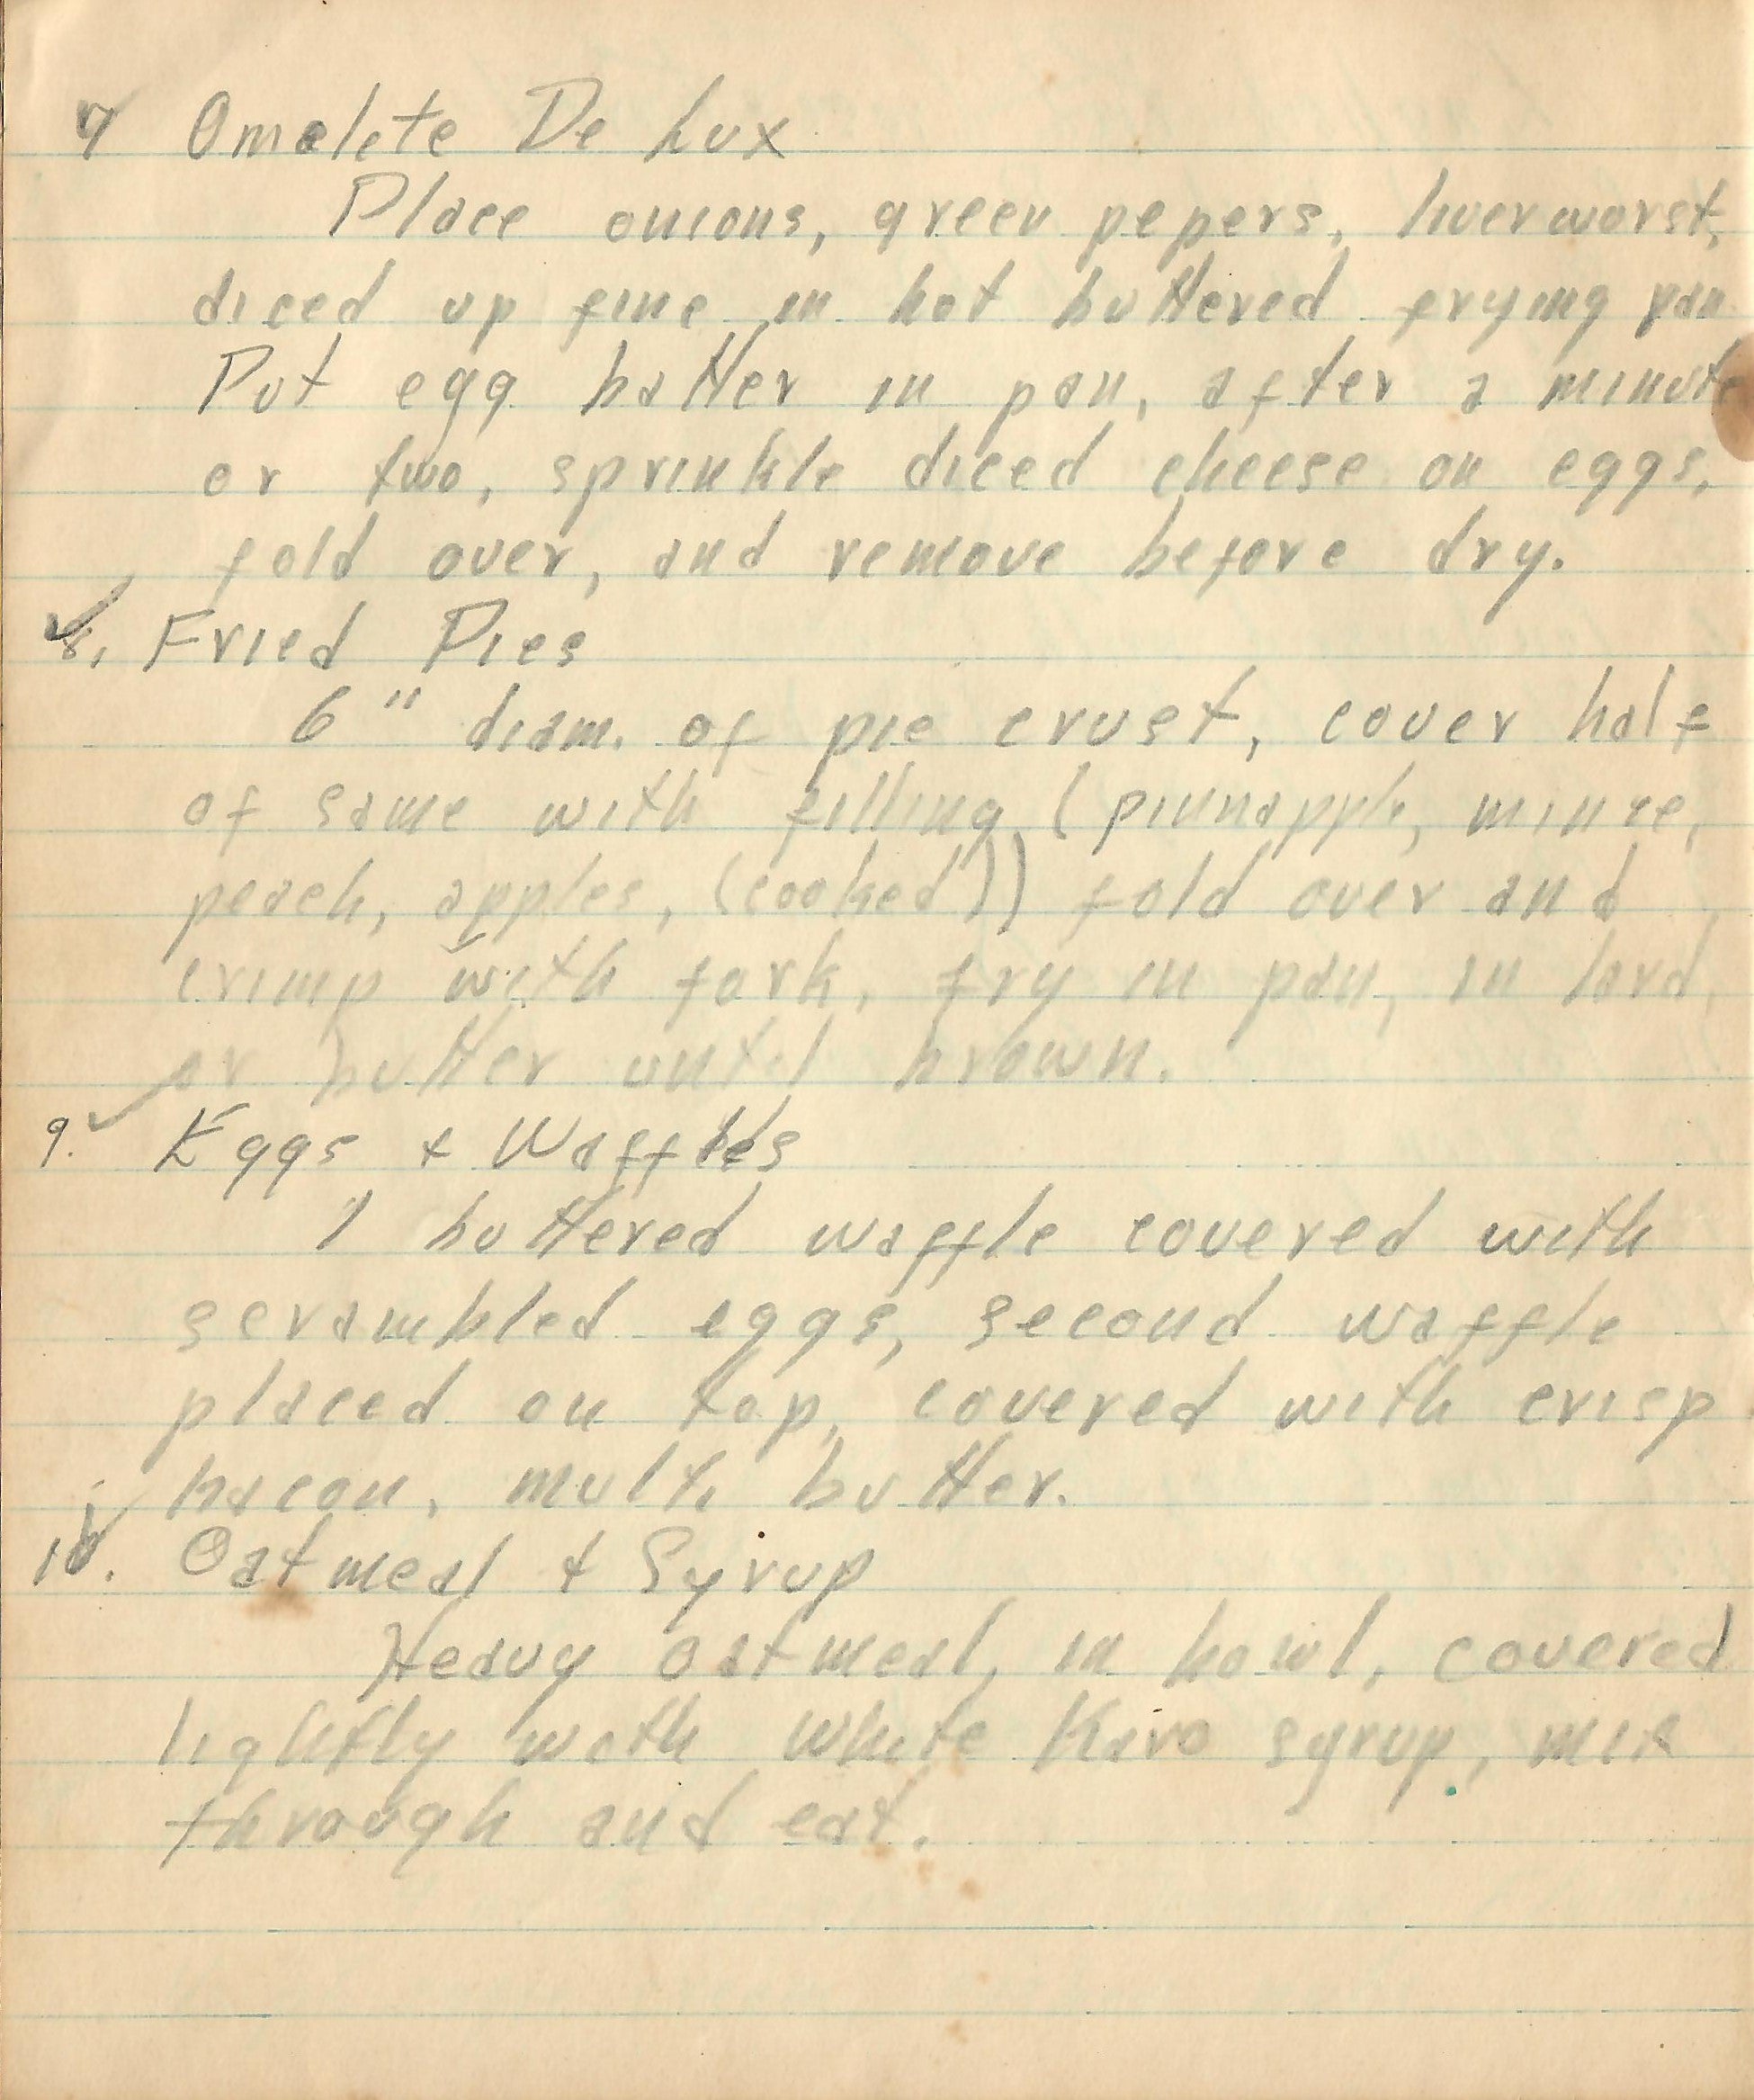 7 Omelete De Lux
Place onions, green pepers, liverworst,
diced up fine in hot buttered frying pan
Put egg batter in pan, after a minute
or two, sprinkle diced cheese on eggs,
fold over, and remove before dry.
8. Fried Pies
6" diam. of pie crust, cover half
of same with filling (pinnapple, mince,
peach, apples, (cooked)) fold over and
crimp with fork, fry in pan, in lard,
or butter until brown.
9. Eggs + Waffles
1 buttered waffle covered with
scrambled eggs, second waffle
placed on top, covered with crisp
bacon, mult. butter.
10. Oatmeal + Syrup
Heavy oatmeal, in bowl, covered
lightly with white Karo syrup, mix
through and eat.